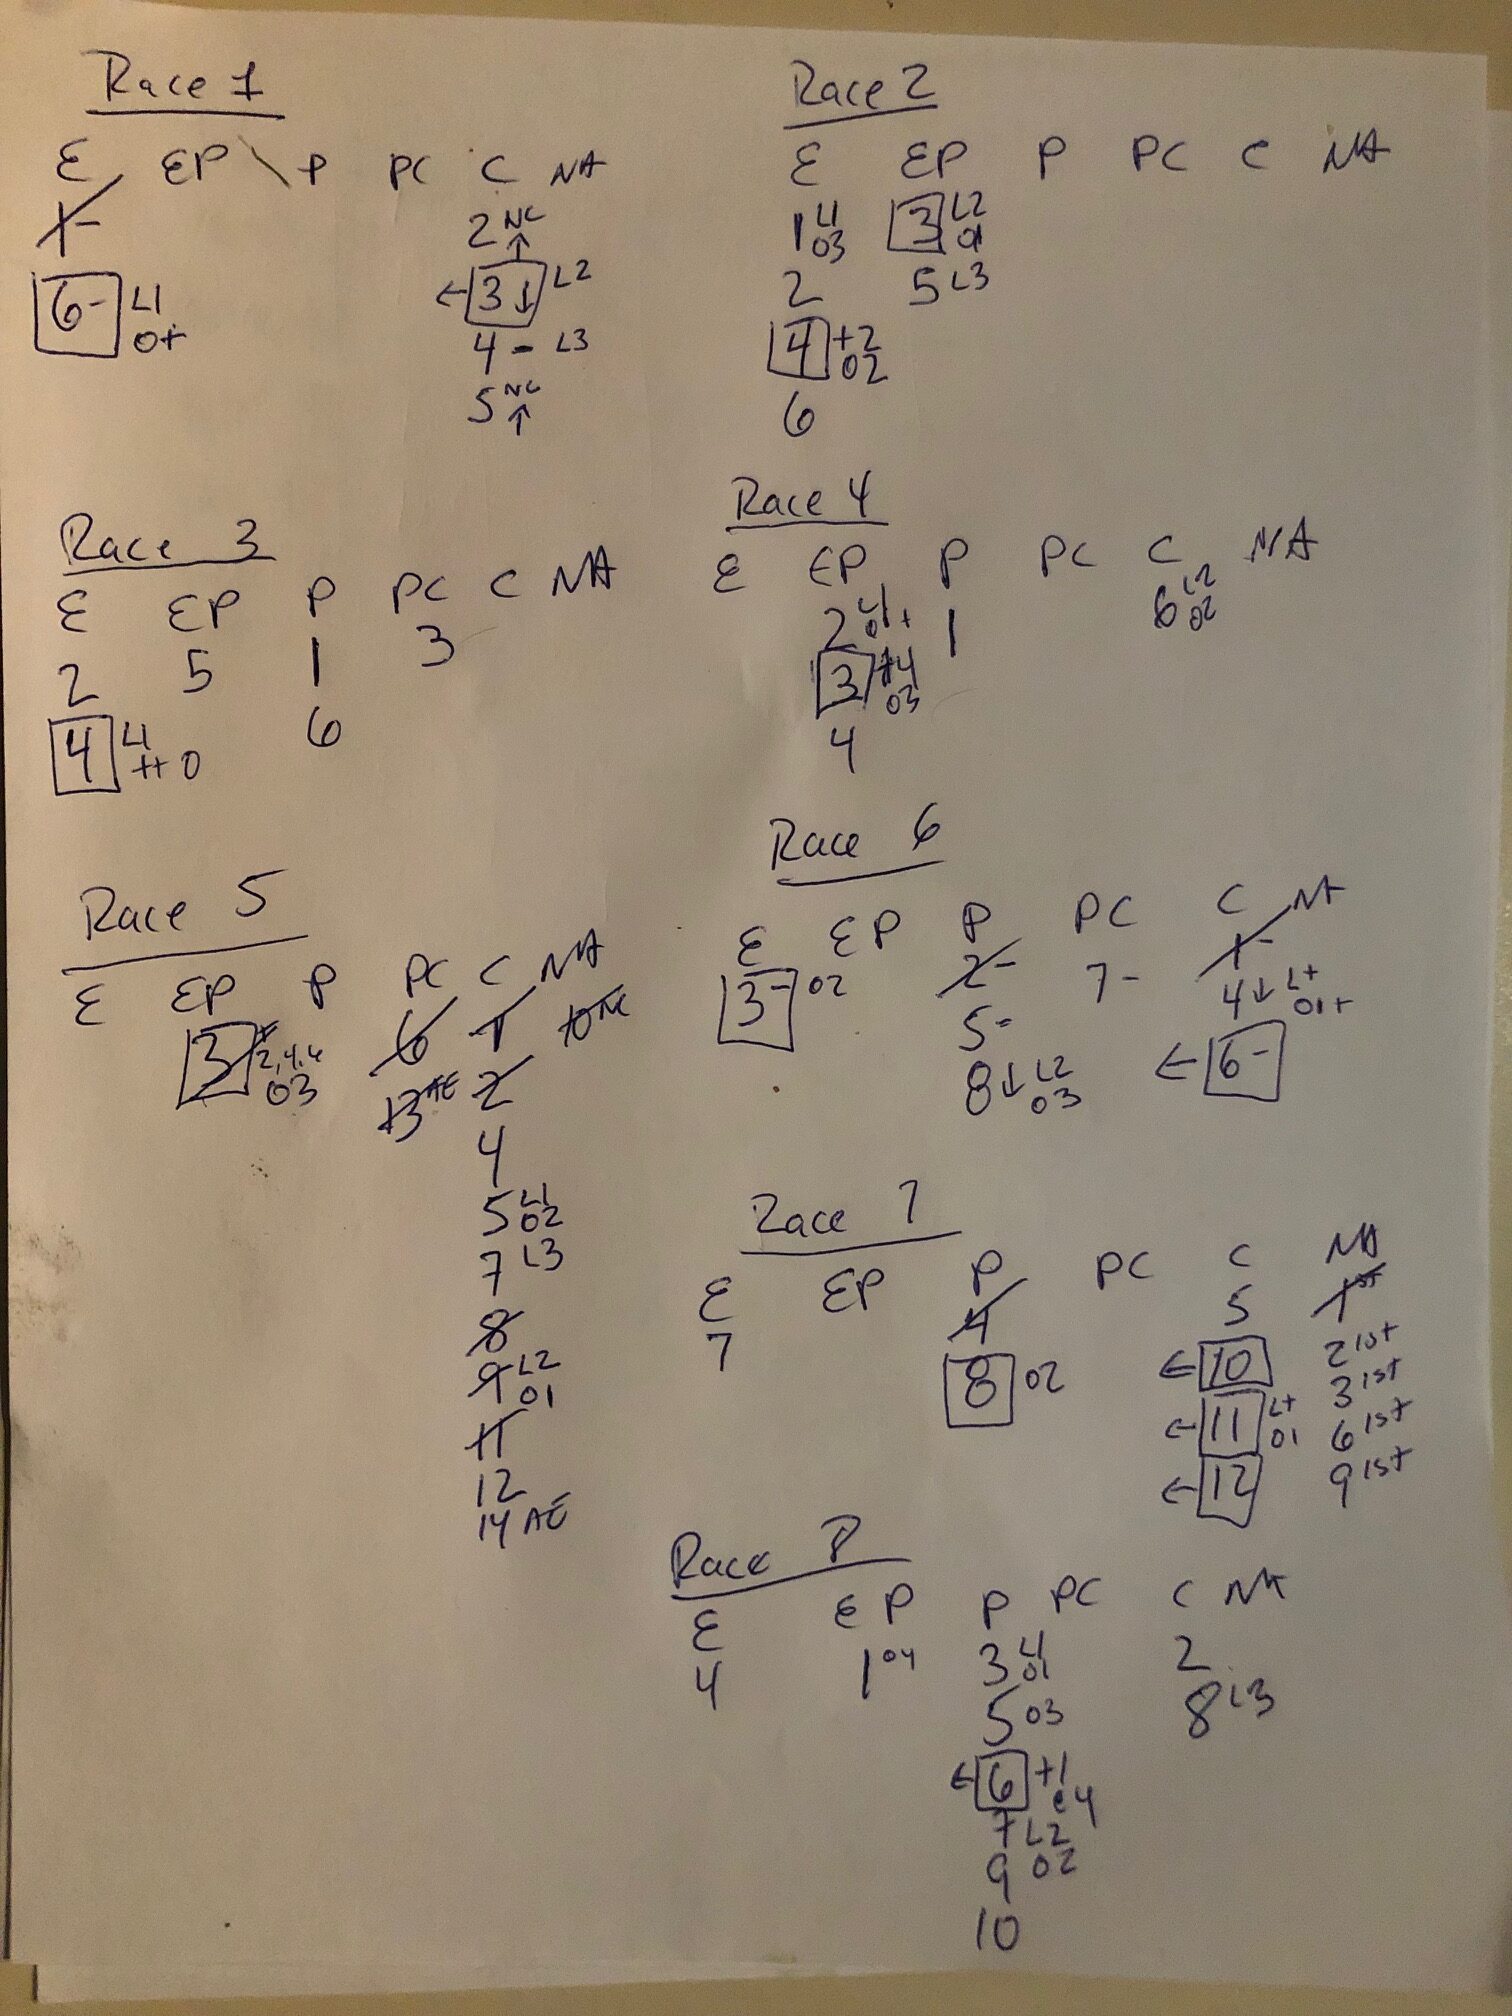 Race 1
E EP P PC C NA
1- 2 NC ↑
6- L1 0+ ← 3 ↓ L2
4 - L3
5 NC ↑
Race 2
E EP P PC C NA
1 L1 03 3 L2 01
2 5 L3
4 +2 02
6
Race 3
E EP P PC C NA
2 5 1 3
4 L1 ++ 0 6
Race 4
E EP P PC C NA
2 L1 01+ 1 6 L2 02
3 +4 03
4
Race 5
E EP P PC C NA
3 03 6 1 10
13 AE 2
4
5 L1 02
7 L3
8
9 L2 01
11
12
14 AE
Race 6
E EP P PC C NA
3- 02 2- 7- 1-
5- 4 ↓ L+ 01+
8 ↓ L2 03 ← 6-
Race 7
E EP P PC C NA
7 4 5 1st
8 02 ← 10 2 1st
← 11 L+ 01 3 1st
← 12 6 1st
9 1st
Race 8
E EP P PC C NA
4 1 04 3 L1 01 2
5 03 8 L3
← 6 +1 e4
7 L2
9 02
10